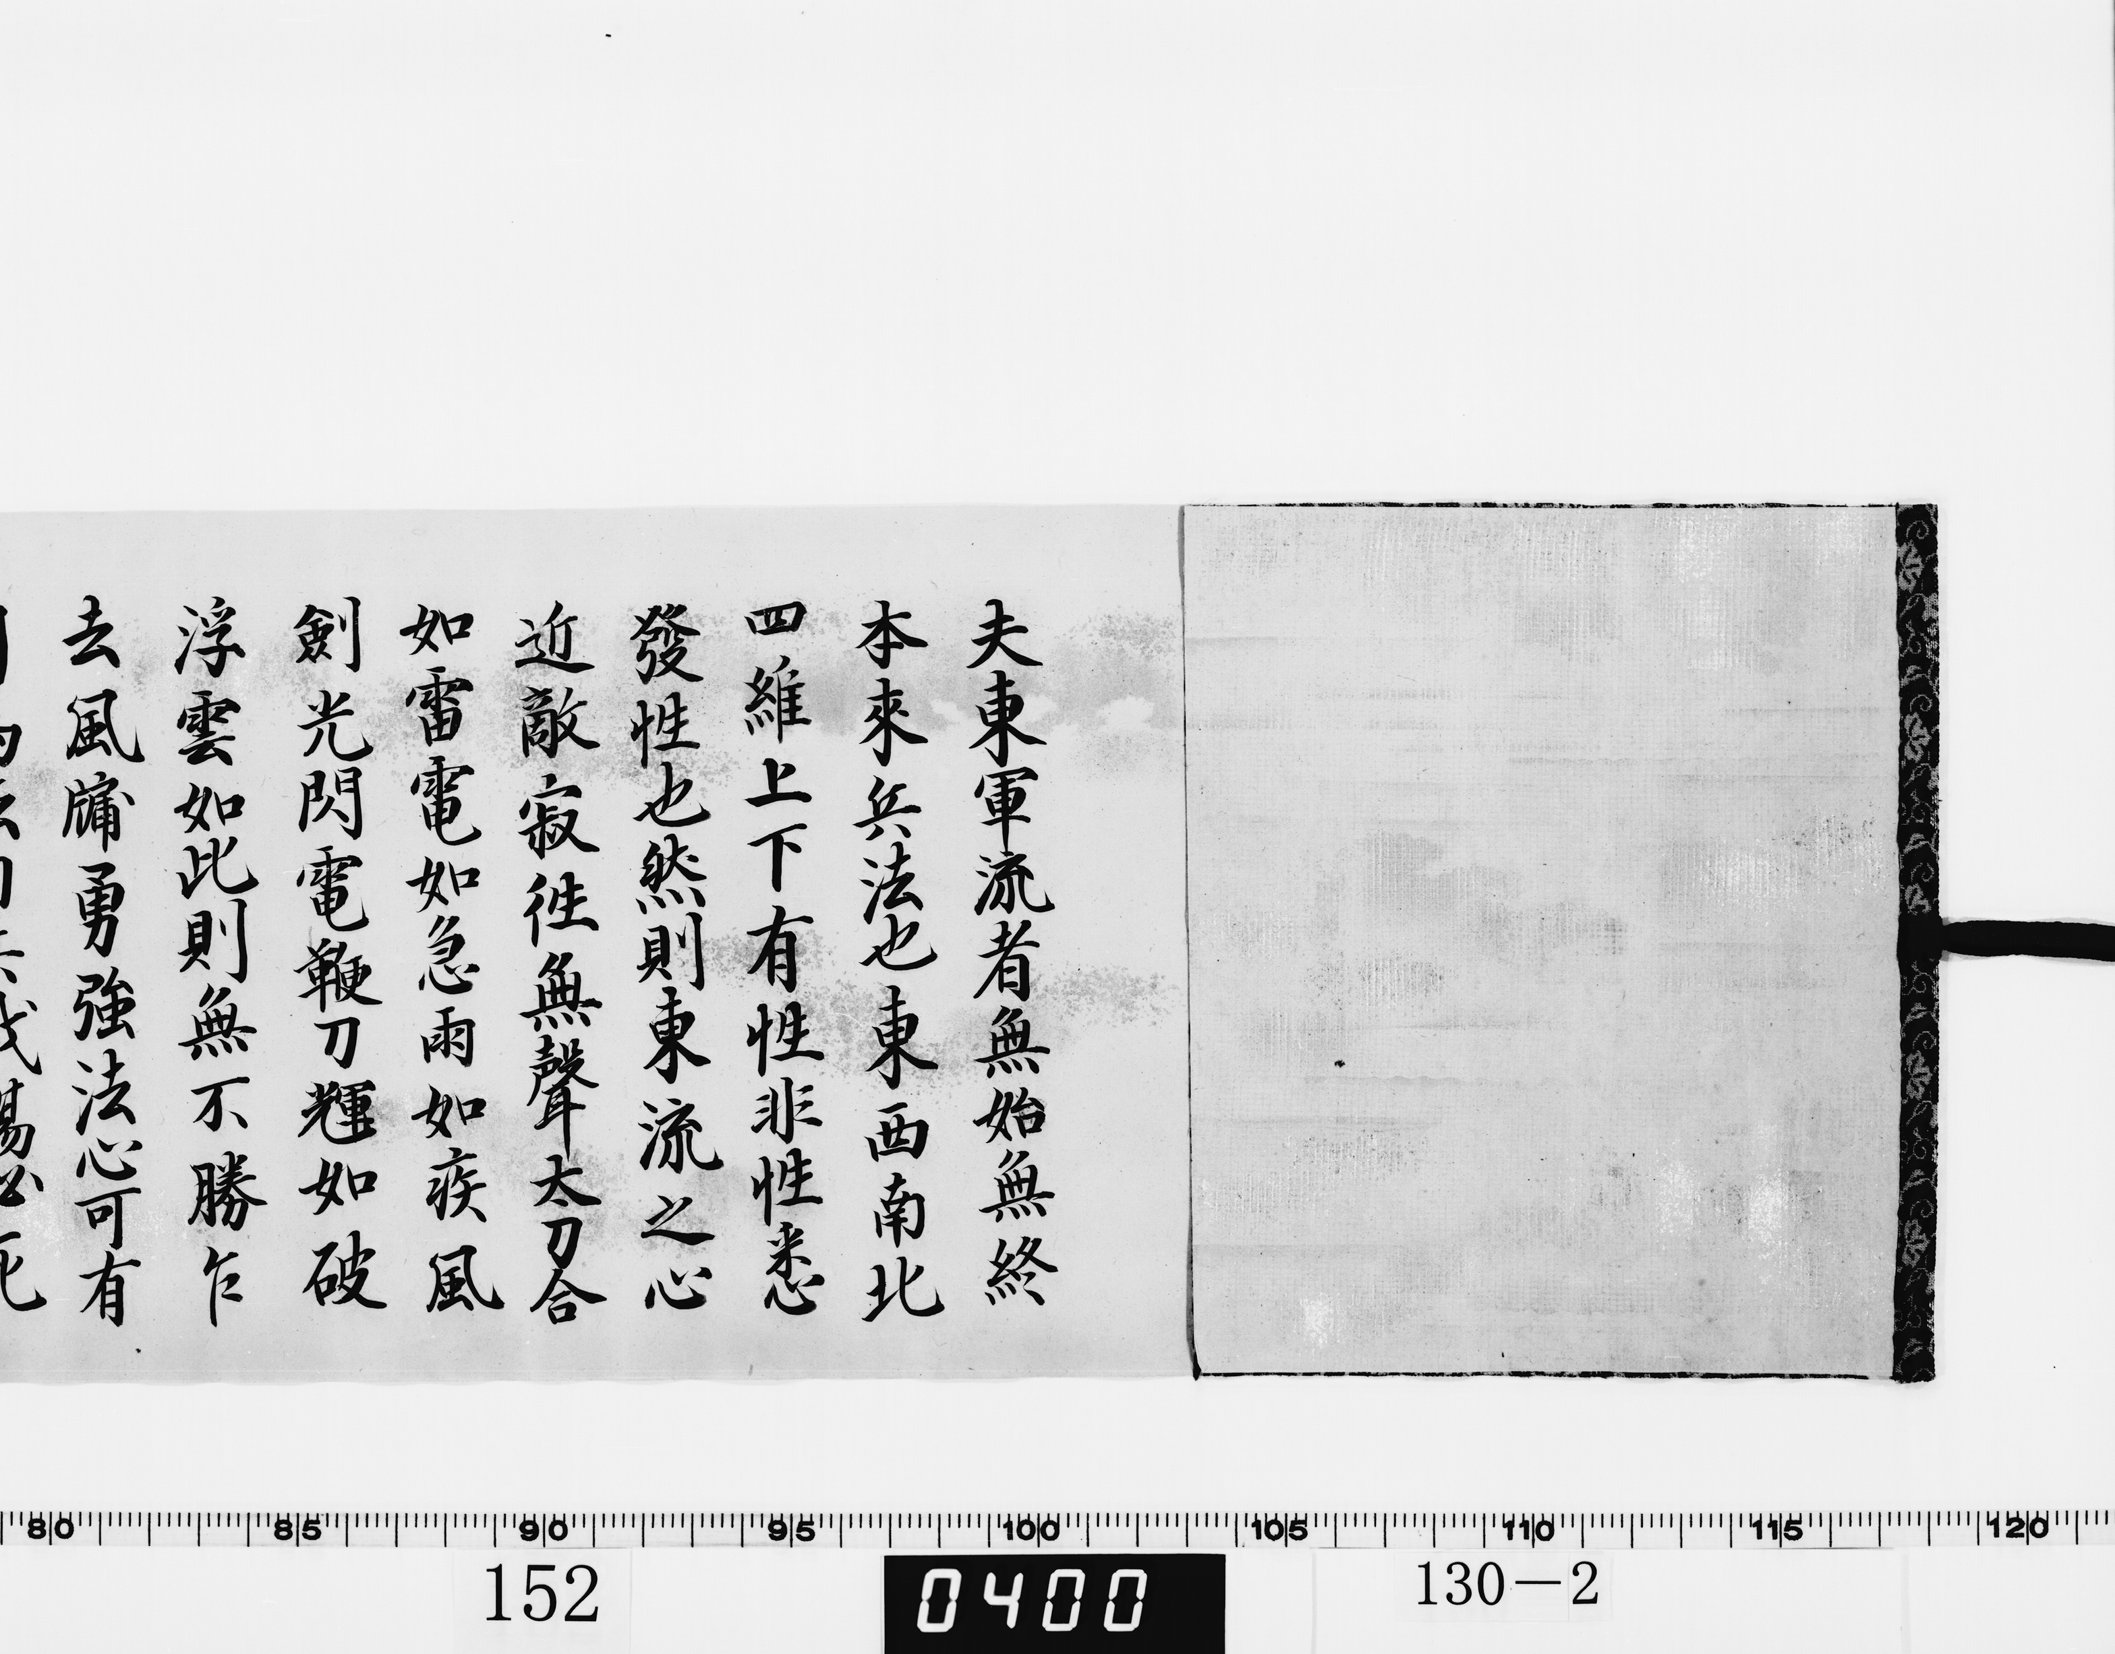 夫東軍流者無始無終
本來兵法也東西南北
四維上下有性非性悉
發性也然則東流之心
近敵寂徃無聲太刀合
如雷電如急雨如疾風
劍光閃電鞭刀輝如破
浮雲如此則無不勝乍
去風牗勇強法心可有
80 85 90 95 100 105 110 115 120
152
0400
130−2